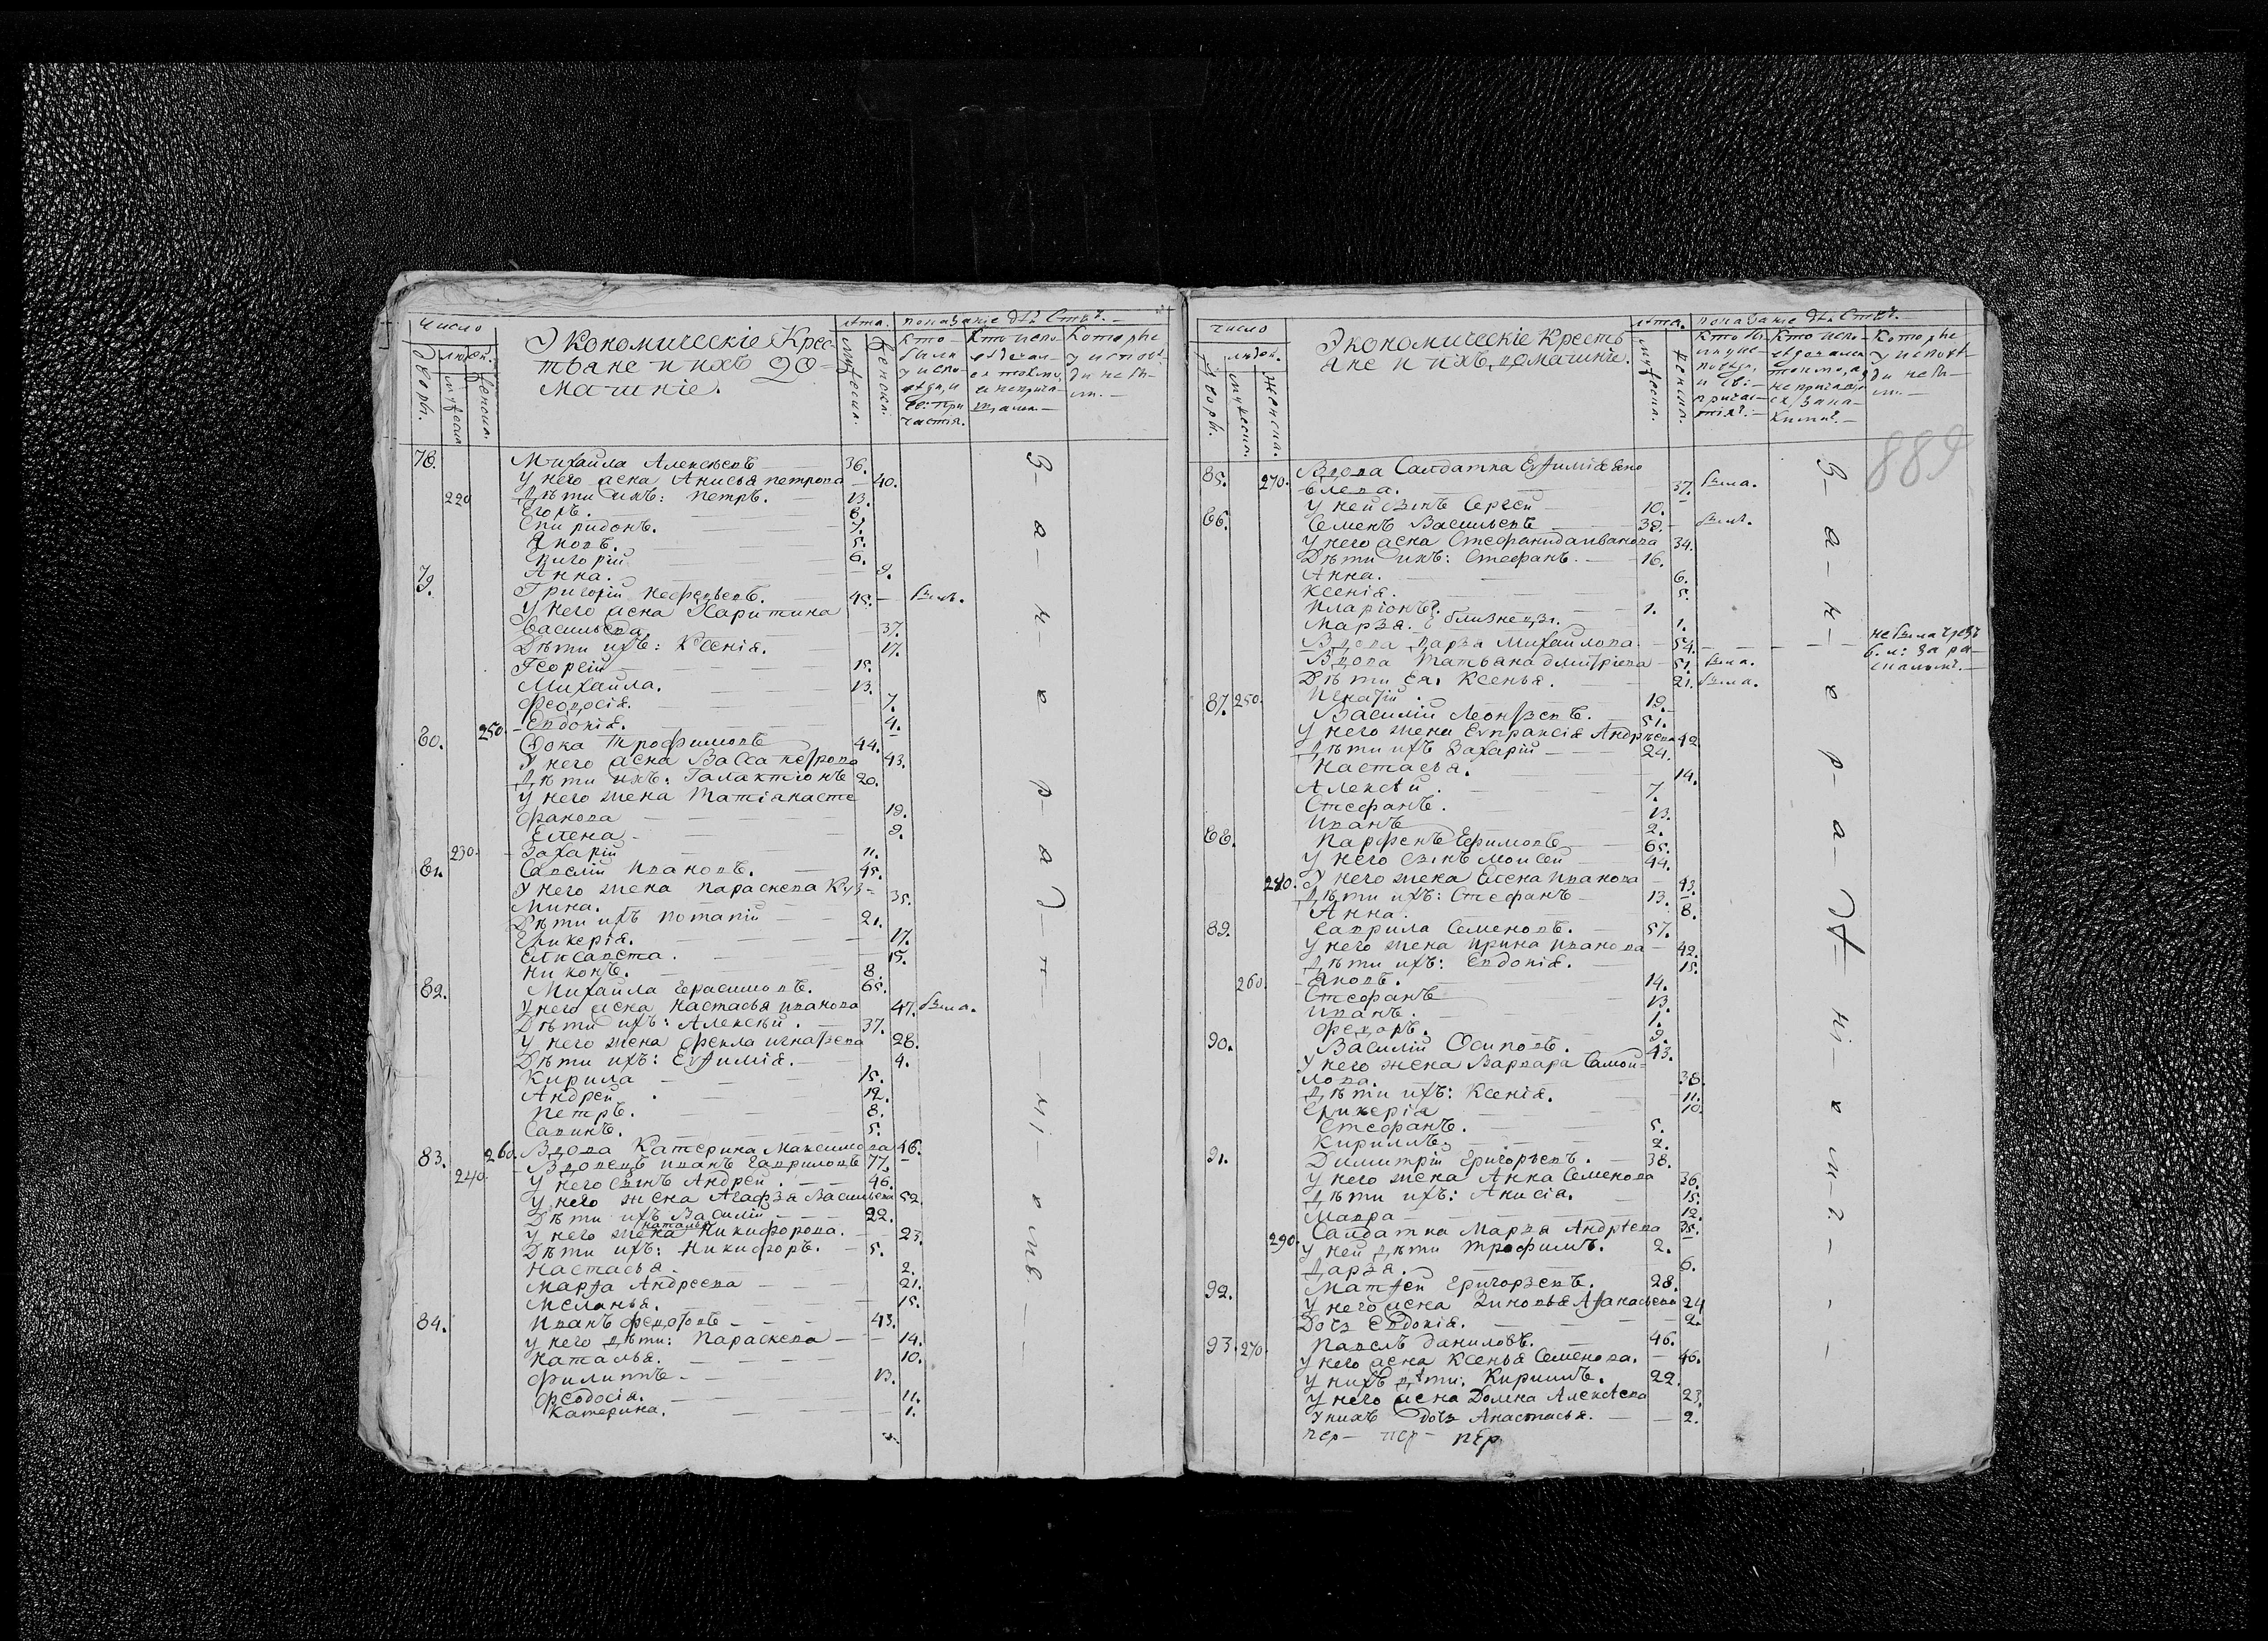 Число
Лѣта.
показанїе дѣйств.
Дворы.
людей.
мужеска
женска.
Экономическїе Крес-
тьяне и ихъ до-
машнїе.
мужеска.
женска.
Кто
были
у испо-
вѣди, и
св: при
частїя.
Кто испо-
вѣдчал-
ся токмо,
а неприча-
щался.
Которые
у исповѣ-
ди не бы-
ли.
78. Михайла Алексѣевъ 36.
У него жена Анисья петрова 40.
220 Дѣти ихъ: Петръ. 13.
Егоръ. 8.
Спиридонъ. 7.
Яковъ. 5.
Григорїй 6.
Анна. 9.
79. Григорїй Нефедьевъ. 45. былъ.
У него жена Харитина
васильева 37.
Дѣти ихъ: Ксенїя. 17.
Георгїй 15.
Михайла. 13.
Феодосїя. 7.
250. Евдокїя. 4.
80. Фока Трофимовъ 44.
У него жена Васса петрова 43.
Дѣти ихъ: Галактїонъ 20.
У него жена Татїана сте
фанова 19.
Елена 9.
230. Захарїй 11.
81. Савелїй Ивановъ. 45.
У него жена параскева Куз-
мина. 35.
Дѣти ихъ потапїй 21.
Гликерїя. 17.
Елисавета. 15.
Никонъ. 8.
82. Михайла Герасимовъ. 65.
У него жена настасья иванова 47. была.
Дѣти ихъ: Алексѣй. 37.
У него жена Фекла игнатьева 28.
Дѣти ихъ: Евфимїя. 4.
Кирила 15.
Андрей 12.
Петръ. 8.
Савинъ. 5.
260. Вдова Катерина Максимова 46.
83. Вдовецъ иванъ Гавриловъ 77.
240. У него сынъ Андрей. 46.
У него жена Агафья Васильева 52.
Дѣти ихъ Василїй 22.
У него жена наталья Никифорова. 23.
Дѣти ихъ: Никифоръ. 5.
Настасья. 2.
Марфа Андреева 21.
Меланья. 15.
84. Иванъ Федотовъ 43.
У него дѣти: Параскева 14.
Наталья. 10.
Филиппъ. 13.
Феодосїя. 11.
Катерина. 1.
За-не-рад-нї-емъ
число
Лѣта.
показанїе дѣйств.
Дворы.
людей.
мужеска.
женска.
Экономическїе Кресть
яне и ихъ домашнїе.
мужеска.
женска.
Кто испо-
вѣдчался
токмо, а
непричаст
Которые
у исповѣ-
ди не бы-
ли.
889
85. 270. Вдова Салдатка Евфимїя Яко
влева. 37. была.
У ней сынъ Сергей 10.
86. Семенъ Васильевъ 38. былъ.
У него жена Стефанида иванова 34.
Дѣти ихъ: Стефанъ. 16.
Анна. 6.
Ксенїя. 5.
Иларїонъ. 1.
Марья. близнецы. 1.
Вдова Дарья Михайлова. 54. не была чрезъ
Вдова Татьяна дмитрїева 51. была.
Дѣти ея: Ксенья. 21. была.
87. 250. Игнатїй. 19.
Василїй Леонтьевъ. 51.
У него жена Евпраксїя Андрѣева 42.
Дѣти ихъ Захарїй 24.
Настасья. 14.
Алексѣй. 7.
Стефанъ. 13.
Иванъ 2.
88. Парфенъ Ефимовъ 65.
У него сынъ Моисей 44.
280. У него жена Елена Иванова 43.
Дѣти ихъ: Стефанъ 13.
Анна. 8.
89. Гаврила Семеновъ. 57.
У него жена Ирина Иванова 42.
Дѣти ихъ: Евдокїя. 15.
260. Яковъ. 14.
Стефанъ 13.
Иванъ. 1.
Федоръ. 9.
90. Василїй Осиповъ. 43.
У него жена Варвара Самой-
лова. 38.
Дѣти ихъ: Ксенїя. 11.
Гликерїя 10.
Стефанъ. 5.
Кириллъ. 2.
91. Димитрїй Григорьевъ. 38.
У него жена Анна Семенова 36.
Дѣти ихъ: Анисїя. 15.
Мавра 12.
Салдатка Марья Андрѣева 35.
290. У ней дѣти Трофимъ. 2.
Дарья. 6.
92. Матфей Григорьевъ. 28.
У него жена Зиновья Афанасьева 24
Дочь Евдокїя. 2.
93. 270. Павелъ даниловъ. 46.
У него жена Ксенья Семенова. 46.
У нихъ дѣти. Кирилъ. 22.
У него жена Домна Алексѣева 23.
У нихъ дочь Анастасья. 2.
пер- пер- пер